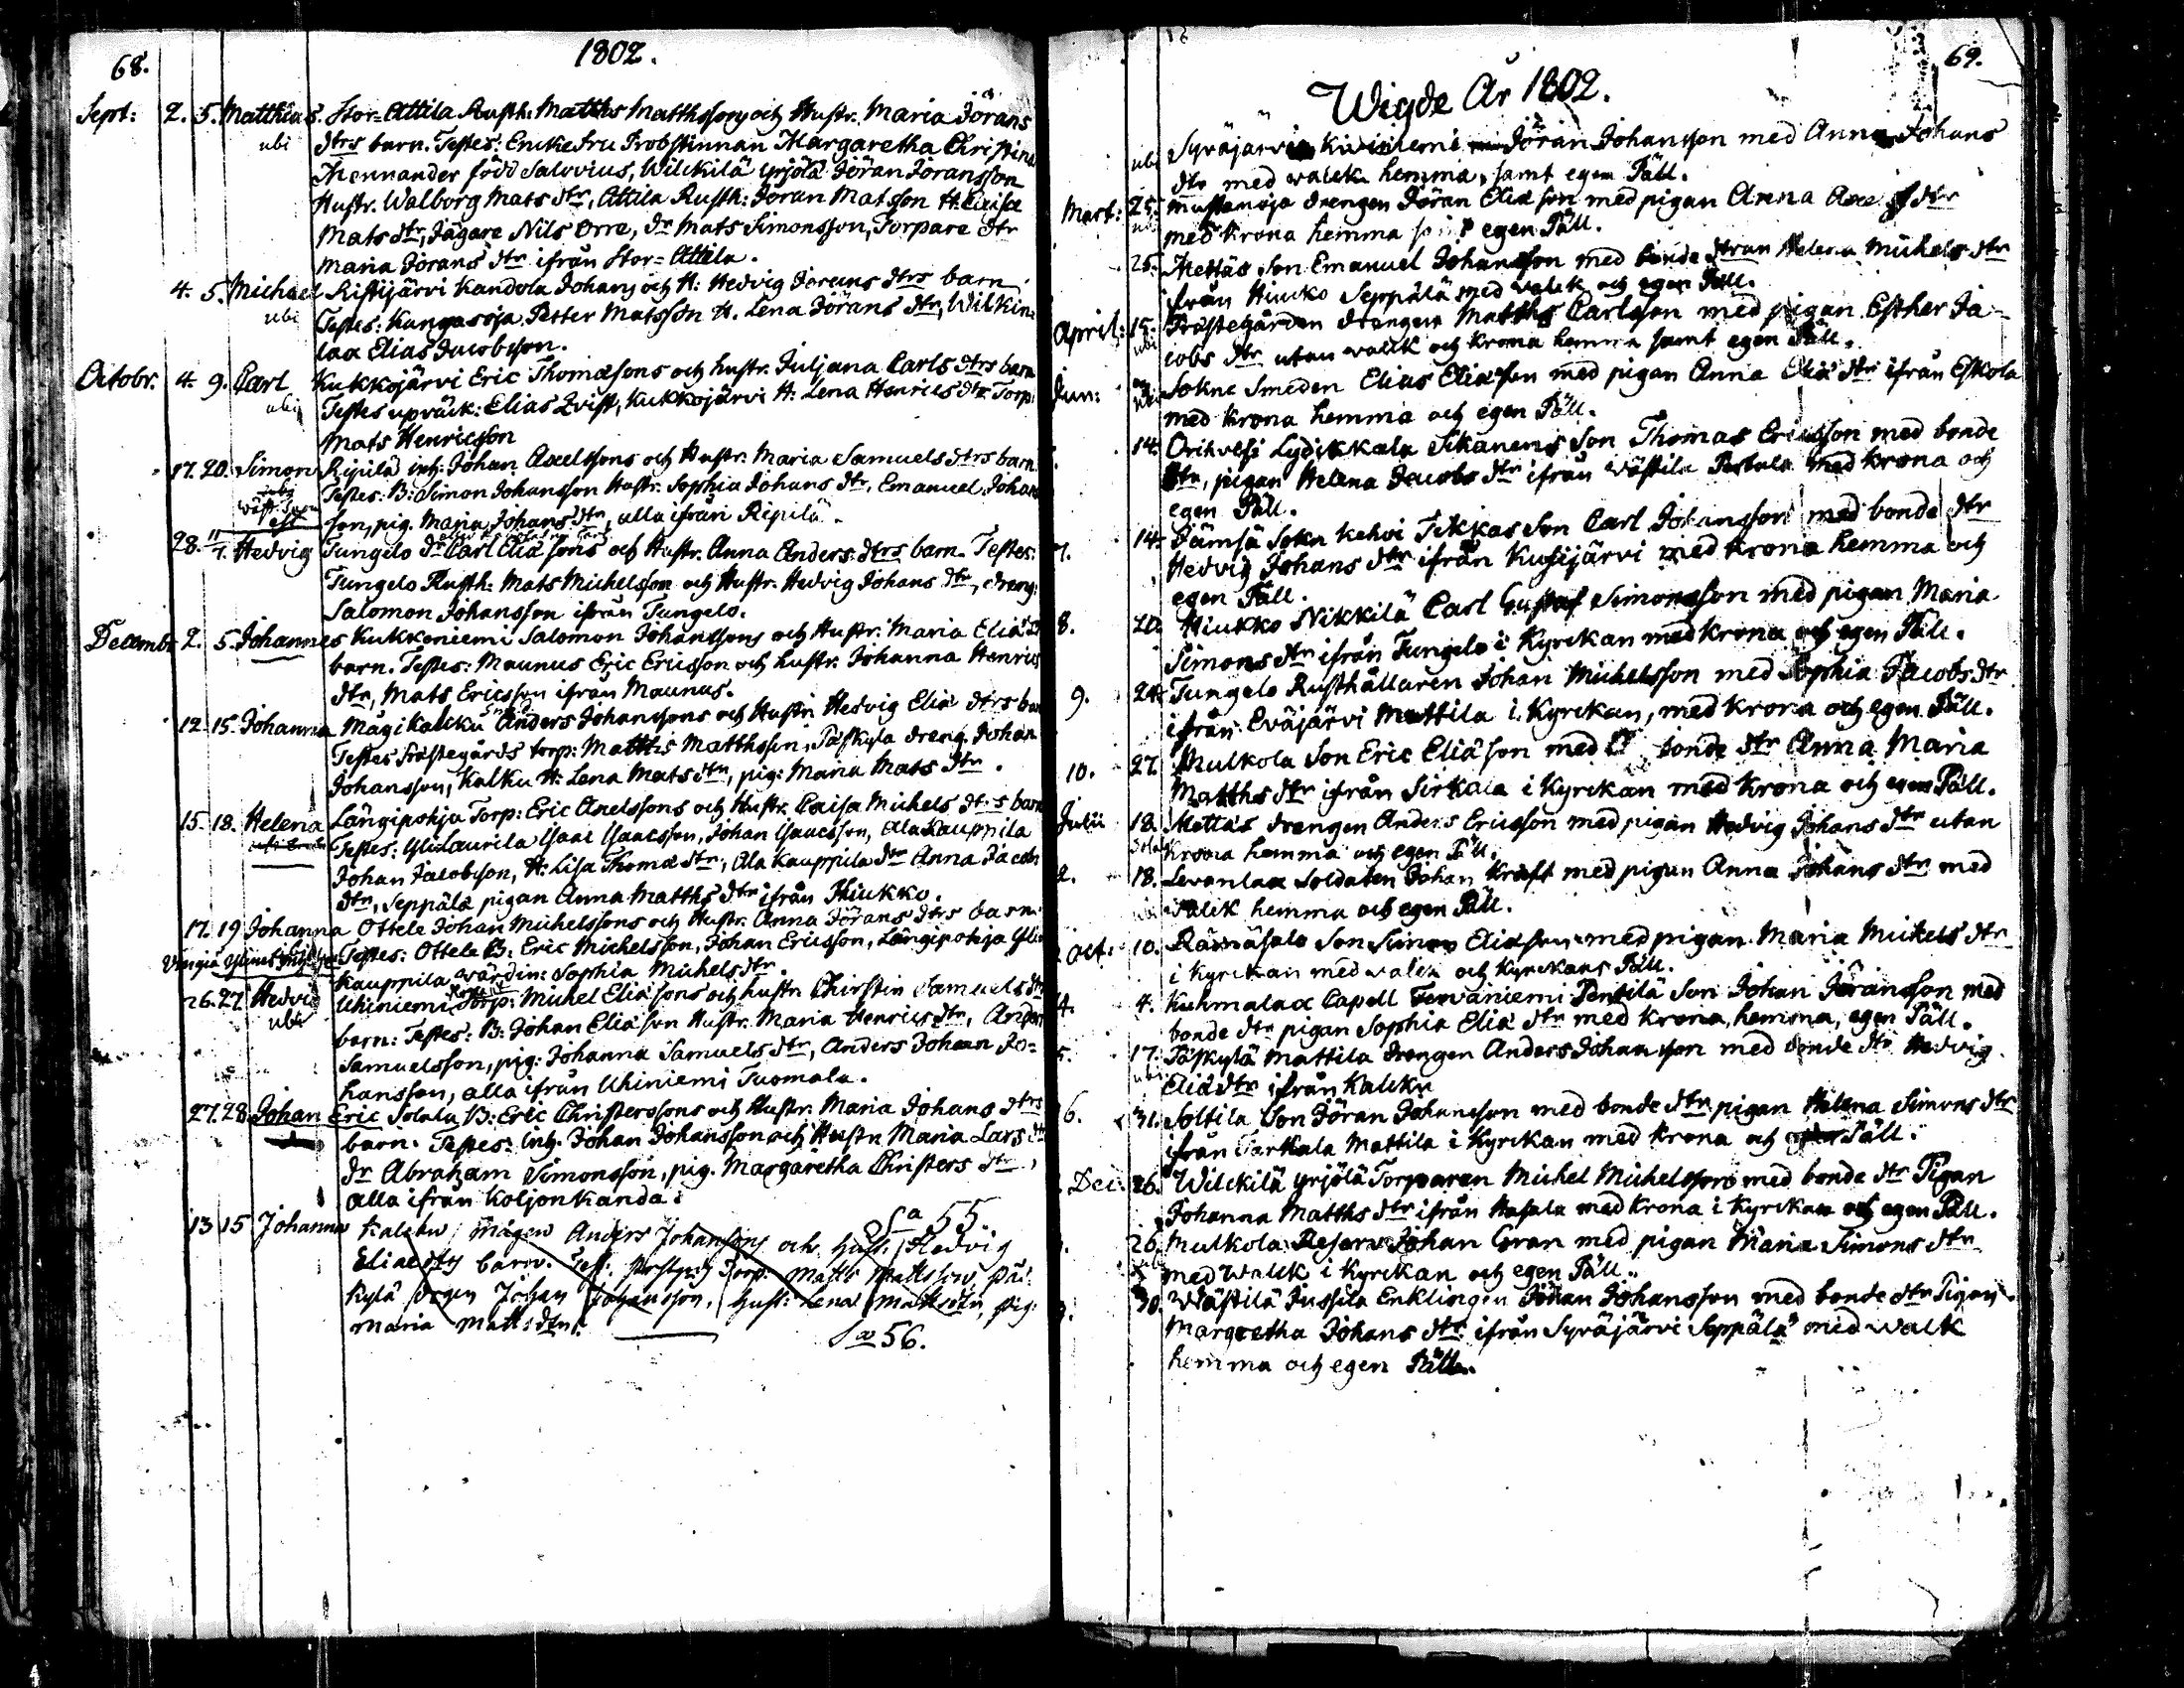 68.
1802.
Sept: 2. 5. Matthias. Stor-Attila Rusth: Matths Matthssons och Hustr. Maria Jörans
ubi dtrs barn. Testes: Enckefru Probstinnan Margaretha Christina
Mennander född Salovius, Wilckilä yrjölä Jöran Jöransson
Hustr. Walborg Mats dtr, Attila Rusth: Jöran Matsson H. Caisa
Mats dtr, Jägare Nils Orre, dr Mats Simonsson, Torpare dtr
Maria Jörans dtr ifrån Stor-Attila.
4. 5. Michael Ristijärvi Kandola Johans och H: Hedvig Jörans dtrs barn
ubi Testes: Kangasoja Petter Matsson H. Lena Jörans dtr, Wilkin
laa Elias Jacobsson.
Octobr. 4. 9. Carl Kukkojärvi Eric Thomæsons och hustr. Juljana Carls dtrs barn
ubi Testes upväck: Elias Zvist, Kukkojärvi H: Lena Henrics dtr Torp:
Mats Henricsson
17. 20. Simon Repilä inh: Johan Axelssons och Hustr. Maria Samuels dtrs barn
Testes: B: Simon Johansson Hustr. Sophia Johans dtr, Emanuel Johans
son, pig. Maria Johans dtr, alla ifrån Repilä.
28. Hedvig Tungelo dr Carl Eliæ sons och Hustr. Anna Anders dtrs barn. Testes:
Tungelo Rusth: Mats Michelsson och Hustr. Hedvig Johans dtr, dreng:
Salomon Johansson ifrån Tungelo.
Decembr 2. 5. Johannes Kukkoniemi Salomon Johanssons och Hustr: Maria Eliæ
barn. Testes: Maunus Eric Ericsson och hustr. Johanna Henrics
dtr, Mats Ericsson ifrån Maunus.
12. 15. Johanna Mågi Kalcku Anders Johanssons och Hustr. Hedvig Eliæ dtrs barn
Testes Prästegårds torp: Matths Matthsson, Päskyla dreng Johan
Johansson, Kalku H: Lena Mats dtr, pig: Maria Mats dtr.
15. 18. Helena Längipohja Torp: Eric Axelssons och Hustr. Caisa Michels dtrs barn
Testes: Yli Laurila Isaac Isaacsson, Johan Isaacsson, Ala Kauppila
Johan Jacobsson, H: Lisa Thomæ dtr, Ala Kauppila dtr Anna Jacobs
dtr, Seppälä pigan Anna Matths dtr ifrån Hiukko.
17. 19 Johanna Ottele Johan Michelssons och Hustr. Anna Jörans dtrs barn
Testes: Ottele B: Eric Michelsson, Johan Ericsson, Längipohja Yli
Kauppila värdin: Sophia Michels dtr.
26. 27 Hedvig Uhiniemi Torp: Michel Eliæ sons och hustr. Christin Samuels dtr
ubi barn: Testes: B: Johan Eliæ son Hustr. Maria Henrics dtr, Anders
Samuelsson, pig: Johanna Samuels dtr, Anders Johan Jo-
hansson, alla ifrån Uhiniemi Tuomala.
27. 28 Johan Eric Solala B: Eric Christerssons och Hustr. Maria Johans dtrs
barn. Testes: inh: Johan Johansson och Hustr Maria Lars dtr
dr Abraham Simonsson, pig. Margaretha Christers dtr,
alla ifrån Koljonkanda.
Sa 55.
13 15 Johanna Kalcku mågen Anders Johanssons och Hust: Hedvig
Eliædtrs barn. Test: Torp: Matts Mattsson, Päs
kylä drgen Johan Johansson, Hust: Lena Mattsdtr, pig:
Maria Mattsdtr.
Sa 56.
69.
Wigde År 1802.
ubi Syväjärvi Kiviniemi Jöran Johansson med Anna Johans
dtr med walck hemma, samt egen Päll.
Mart: 25. Mustanoja drengen Jöran Eliæ son med pigan Anna dtr
med Krona hemma egen Päll.
25. Mettäs Son Emanuel Johansson med bonde dtran Helena Michels dtr
ifrån Hiucko Seppälä med walck och egen Päll.
April: 15. Prästegården drengen Matths Carlsson med pigan Esther Ja-
ubi cobs dtr utan walck och Krona hemma samt egen Päll.
Jun: Sokne Smeden Elias Eliæson med pigan Anna Eliæ dtr ifrån Eskola
med Krona hemma och egen Päll.
14. Orihvesi Lydikkala Sikanens Son Thomas Ericsson med bonde
dtr, pigan Helena Jacobs dtr ifrån Västila med Krona och
egen Päll.
7. 14. Jämsä Sokn Kehoi Tikkas Son Carl Johansson med bonde dtr
Hedvig Johans dtr ifrån Kusijärvi med Krona hemma och
egen Päll.
8. 20. Hiukko Nikkilä Carl Gustaf Simonsson med pigan Maria
Simons dtr ifrån Tungelo i Kyrckan med Krona och egen Päll.
9. 24. Tungelo Rusthållaren Johan Michelsson med Sophia Jacobs dtr
ifrån Eväjärvi Mattila i Kyrckan, med Krona och egen Päll.
10. 27. Mulkola Son Eric Eliæ son med bonde dtr Anna Maria
Matths dtr ifrån Sirkala i Kyrckan med Krona och egen Päll.
Julii 18. Mettäs drengen Anders Ericsson med pigan Hedvig Johans dtr utan
Krona hemma och egen Päll.
2. 18. Levanlax Soldaten Johan Kraft med pigan Anna Johans dtr med
walck hemma och egen Päll.
Oct: 10. Son Simon Eliæson med pigan Maria Michels dtr
i Kyrckan med walck och Kyrckans Päll.
4. 4. Kuhmalax Capell Tervaniemi Pentilä Son Johan Jöransson med
bonde dtr pigan Sophia Eliæ dtr med Krona, hemma, egen Päll.
5. 17. Päskylä Mattila drengen Anders Johansson med bonde dtr Hedvig
Eliæ dtr ifrån Kalcku
6. 31. Soltila Son Jöran Johansson med bonde dtr pigan Helena Simons dtr
ifrån Sarkala Mattila i Kyrckan med Krona och Päll.
Dec: 26. Wilckilä yrjölä Torparen Michel Michelsson med bonde dtr Pigan
Johanna Matths dtr ifrån Hasala med Krona i Kyrckan och egen Päll.
26. Mulkola Reserv Johan Gran med pigan Maria Simons dtr
med Walck i Kyrckan och egen Päll.
30. Wästilä Jussila Enklingen Johan Johansson med bonde dtr Pigan
Margretha Johans dtr ifrån Syväjärvi Seppälä med walck
hemma och egen Päll.